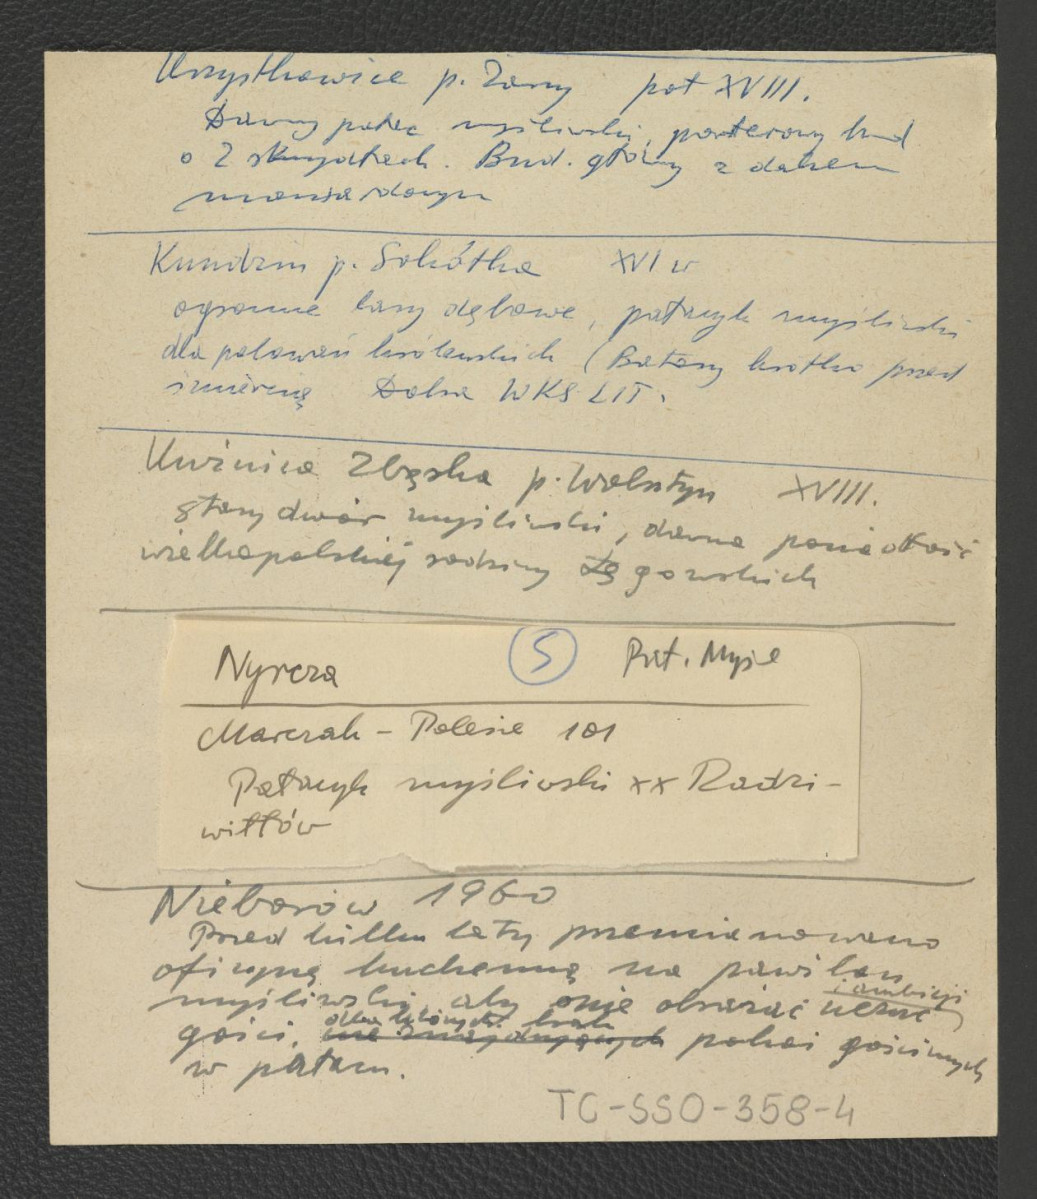 p. Żary poł XVIII.
Dawny pałac myśliwski, parterowy bud
o 2 skrzydłach. Bud. główny z dachem
mansardowym
Kundzin p. Sokółka XVI w
ogromne lasy dębowe, pałacyk myśliwski
dla polowań królewskich (Batory krótko przed
śmiercią Dobra WKS LIT.
Kuźnica Zbąska p. Wolsztyn XVIII.
stary dwór myśliwski, dawna posiadłość
wielkopolskiej rodziny Żegowskich
Nyrcza 5 Pał. Myśl
Marczak – Polesie 101
Pałacyk myśliwski xx Radzi-
wiłłów
Nieborów 1960
Przed kilku laty przemianowano
oficynę kuchenną na pawilon
myśliwski, aby nie obrażać uczuć
i ambicji
gości, dla których brak pokoi gościnnych
w pałacu.
TC-SSO-358-4